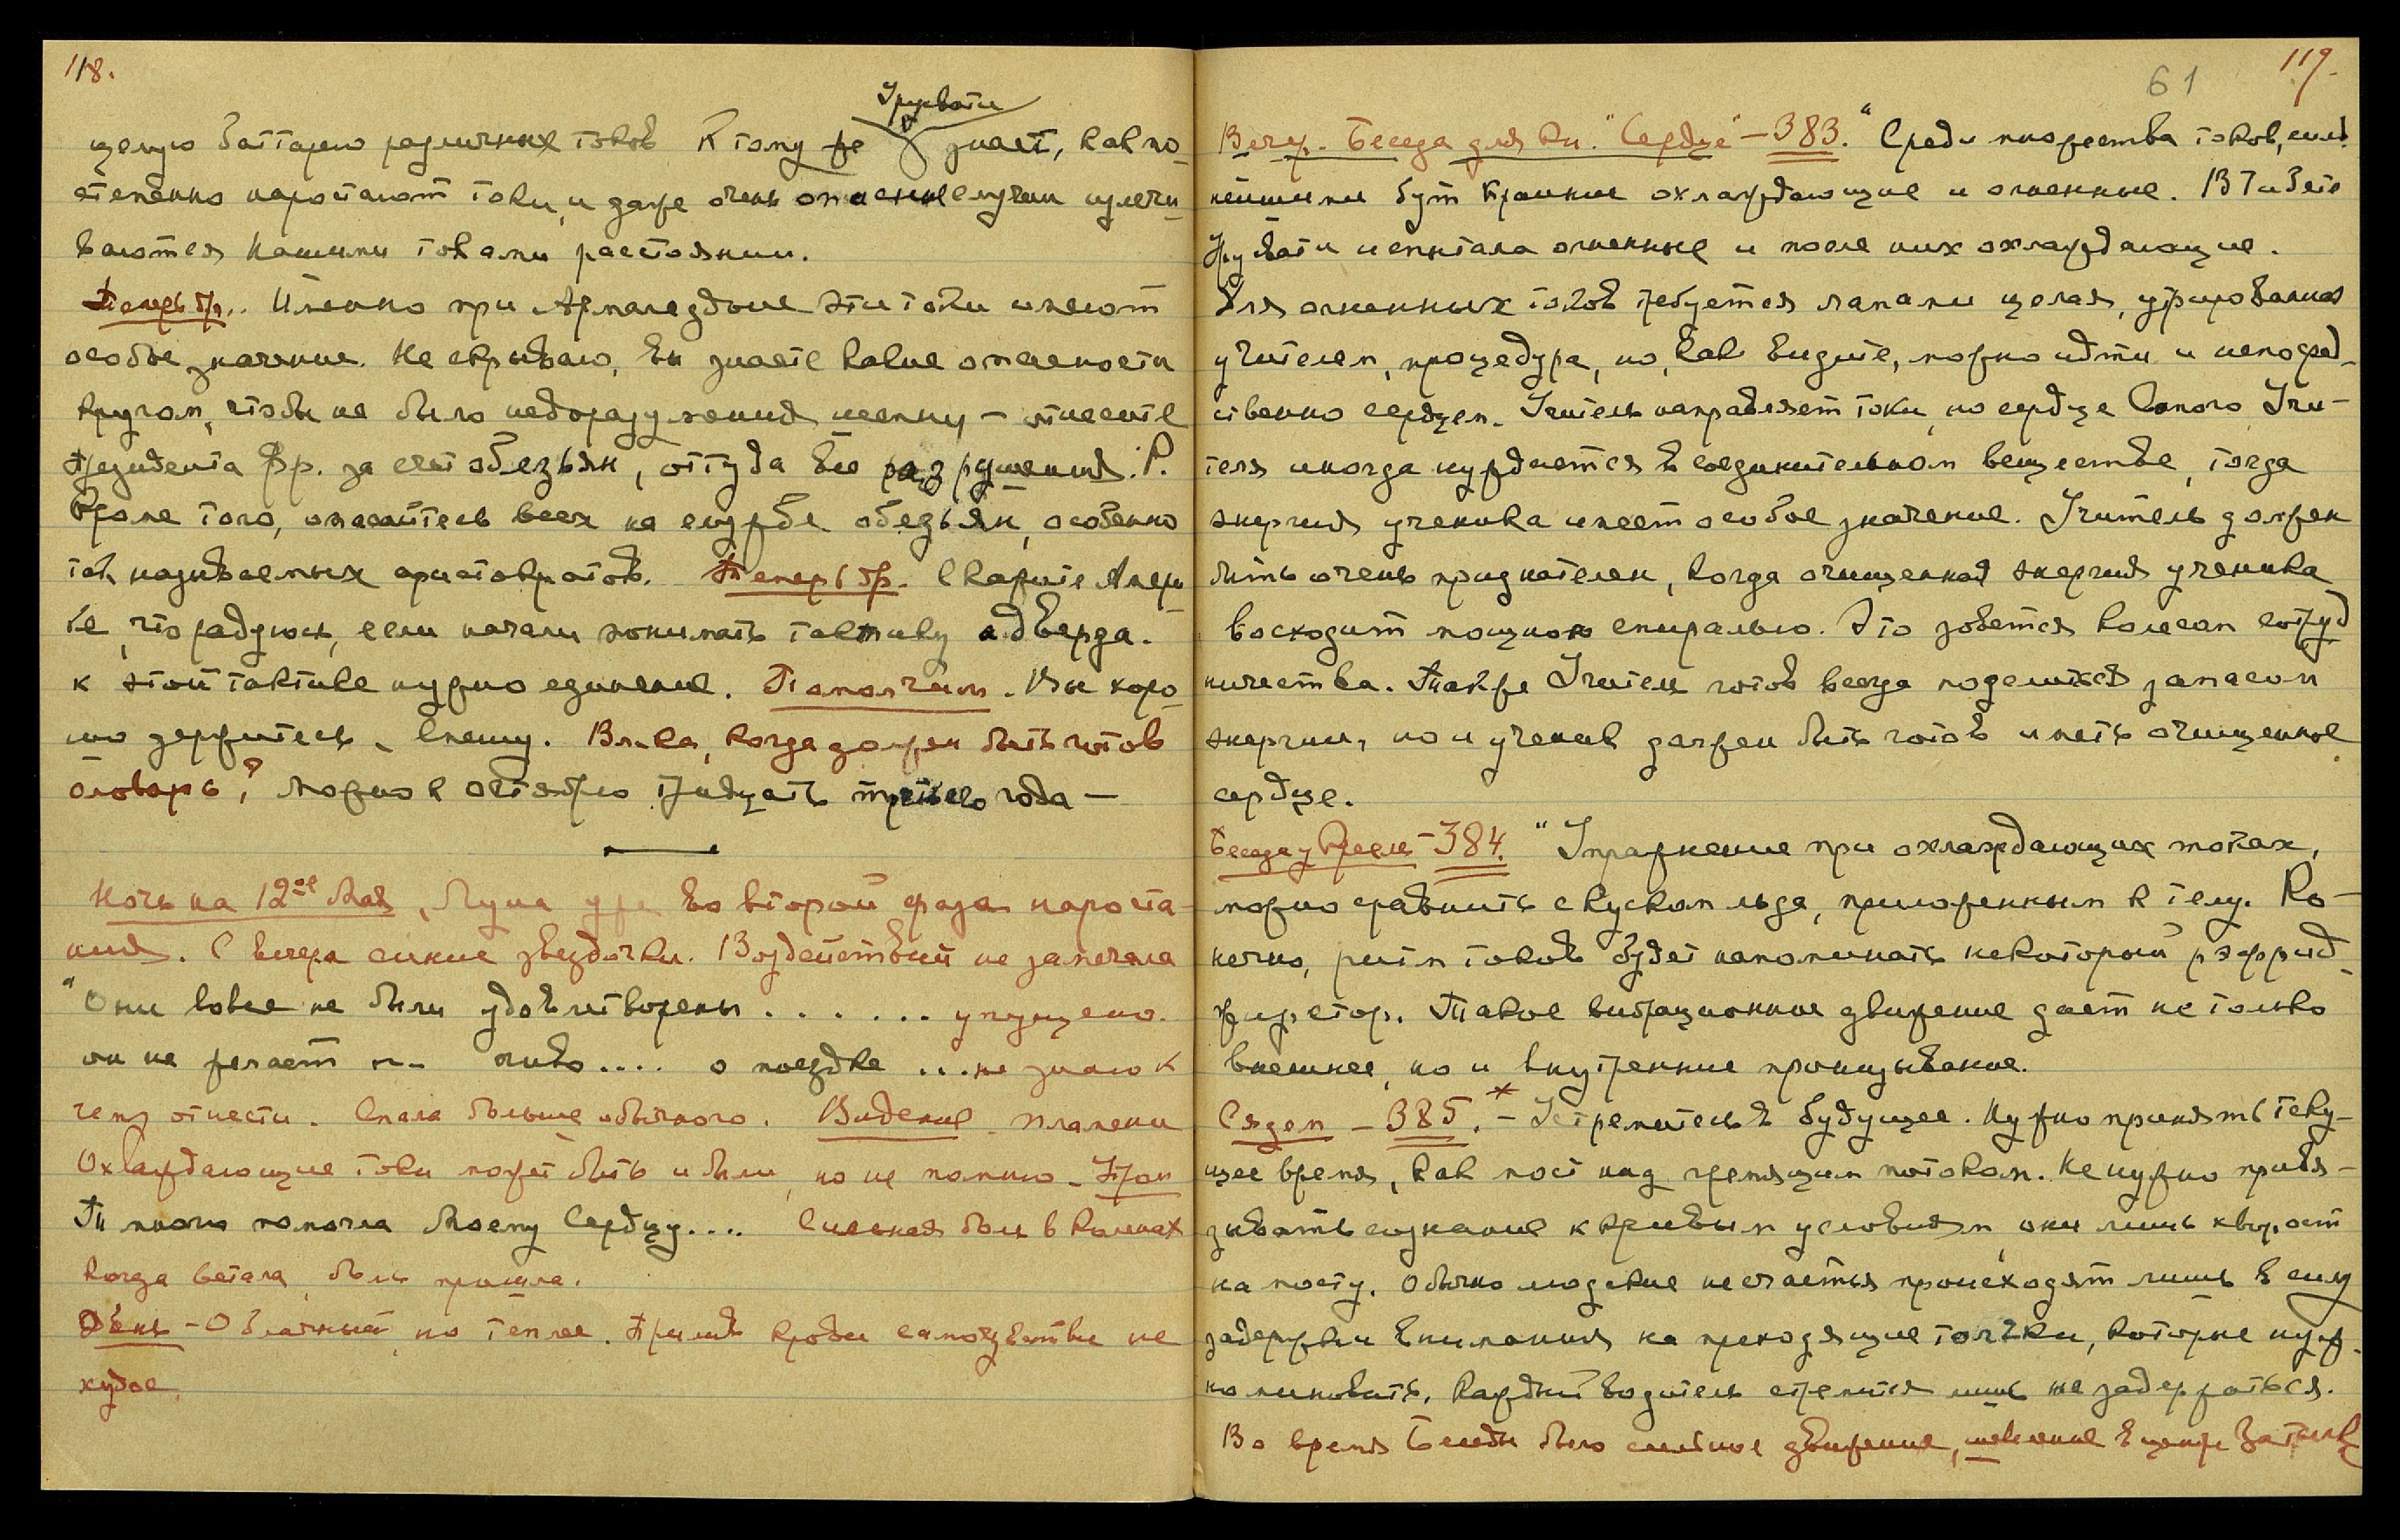 118.
Урусвати
целую баттарею различных токов К тому же знает, как по-
степенно наростают токи, и даже очень опасные случаи излечи-
ваются Нашими токами расстояний.
Теперь др.. Именно при Армагеддоне эти токи имеют
особое значение. Не скрываю, вы знаете какие опасности
кругом, чтобы не было недоразумений — отнесите
Президента Фр. за счет обезьян, оттуда все разрушения.
Кроме того, опасайтесь всех на службе обезьян, особенно
так называемых аристократов. Теперь др. Скажите Амери-
ке, что радуюсь, если начали понимать тактику адверза.
К этой тактике нужно единение. Помолчим. Вы хоро-
шо держитесь. Спешу. Вл-ка, когда должен быть готов
словарь? Можно к октябрю тридцать третьего года —
Ночь на 12ое Мая, Луна уже во второй фазе нароста-
ния. С вечера синие звездочки. Воздействий не замечала
"Они вовсе не были удовлетворены . . . . . . упущено.
он не желает .... о поездке ... не знаю к
чему отнести. Спала больше обычного. Видение пламени
Охлаждающие токи может быть и были, но не помню.
Ты много помогла Моему Сердцу.... Сильная боль в коленах
когда встала, боль прошла.
День - Облачный, но теплее. Прилив крови самочувствие не
худое.
61
119.
Вечер. Беседа для кн. "Сердце" — 383. "Среди множества токов, силь-
нейшими будут крайние охлаждающие и огненные. В Тибете
Урусвати испытала огненные и после них охлаждающие.
Для огненных токов требуется ламами целая, утрированная
учителем, процедура, но, как видите, можно идти и непосред-
ственно сердцем. Учитель направляет токи, но сердце самого Учи-
теля иногда нуждается в соединительном веществе, тогда
энергия ученика имеет особое значение. Учитель должен
быть очень признателен, когда очищенная энергия ученика
восходит мощною спиралью. Это зовется колесом сотруд-
ничества. Также Учитель готов всегда поделиться запасом
энергии, но и ученик должен быть готов иметь очищенное
сердце.
Беседа у Кресла — 384. "Упражнение при охлаждающих токах,
можно сравнить с куском льда, приложенным к телу. Ко-
нечно, ритм токов будет напоминать некоторый рэфрид-
жиретор. Такое вибрационное движение дает не только
внешнее, но и внутреннее пронизывание.
Сядем — 385. — Устремитесь в будущее. Нужно принять теку-
щее время, как мост над гремящим потоком. Не нужно привя-
зывать сознание к кривым условиям, они лишь хворост
на мосту. Обычно людские несчастья происходят лишь в силу
задержки внимания на преходящие толчки, которые нуж-
но миновать. Каждый водитель стремится лишь не задержаться.
Во время Беседы было сильное движение, в центре Затылк